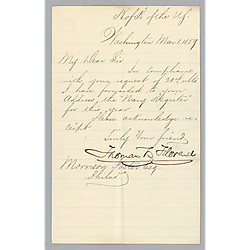 Ho of R of the US.
Washington Mar 1. 1859
My Dear Sir
In Compliance
with your request of 28th ult
I have forwarded to your
Address, the Navy Register
for this year
Please acknowledge re-
ceipt
Truly Your friend
Thomas B Florence
Morrison Esq.
Philad